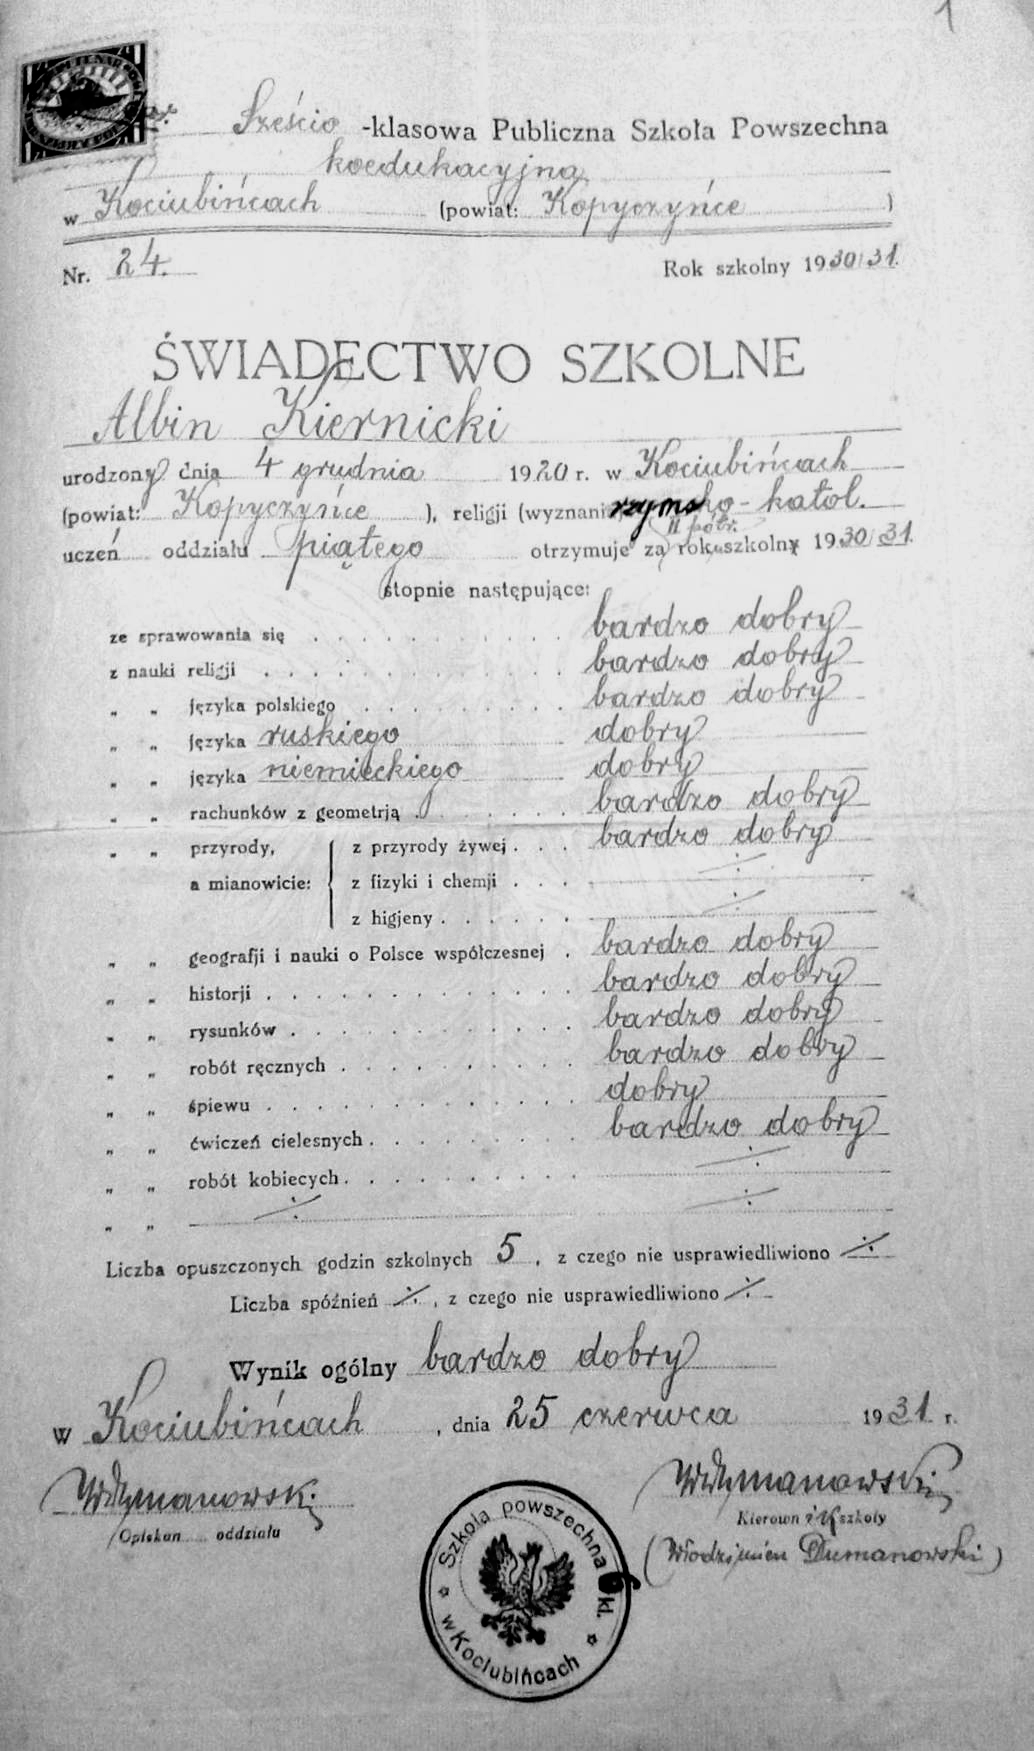 1
Sześcio -klasowa Publiczna Szkoła Powszechna
koedukacyjna
w Kociubińcach (powiat: Kopyczyńce )
Nr. 24. Rok szkolny 1930/31.
ŚWIADECTWO SZKOLNE
Albin Kiernicki
urodzony dnia 4 grudnia 1920 r. w Kociubińcach
(powiat: Kopyczyńce ), religji (wyznania) rzymsko-katol.
II półr.
uczeń oddziału piątego otrzymuje za rok szkolny 1930/31.
stopnie następujące:
ze sprawowania się . . . . . . . . . bardzo dobry
z nauki religji . . . . . . . . . . . . bardzo dobry
" " języka polskiego . . . . . . . . bardzo dobry
" " języka ruskiego dobry
" " języka niemieckiego dobry
" " rachunków z geometrją . . . . . . bardzo dobry
" " przyrody, z przyrody żywej . . . bardzo dobry
a mianowicie: z fizyki i chemji . . . ÷
z higjeny . . . . . . ÷
" " geografji i nauki o Polsce współczesnej . bardzo dobry
" " historji . . . . . . . . . . . . . bardzo dobry
" " rysunków . . . . . . . . . . . . bardzo dobry
" " robót ręcznych . . . . . . . . . . bardzo dobry
" " śpiewu . . . . . . . . . . . . . dobry
" " ćwiczeń cielesnych . . . . . . . . . bardzo dobry
" " robót kobiecych . . . . . . . . . . ÷
" " ÷ ÷
Liczba opuszczonych godzin szkolnych 5 , z czego nie usprawiedliwiono ÷
Liczba spóźnień ÷ , z czego nie usprawiedliwiono ÷
Wynik ogólny bardzo dobry
w Kociubińcach , dnia 25 czerwca 1931 r.
WDumanowski WDumanowski
Opiekun oddziału Kierownik szkoły
(Włodzimierz Dumanowski)
Szkoła powszechna 6 kl.
w Kociubińcach